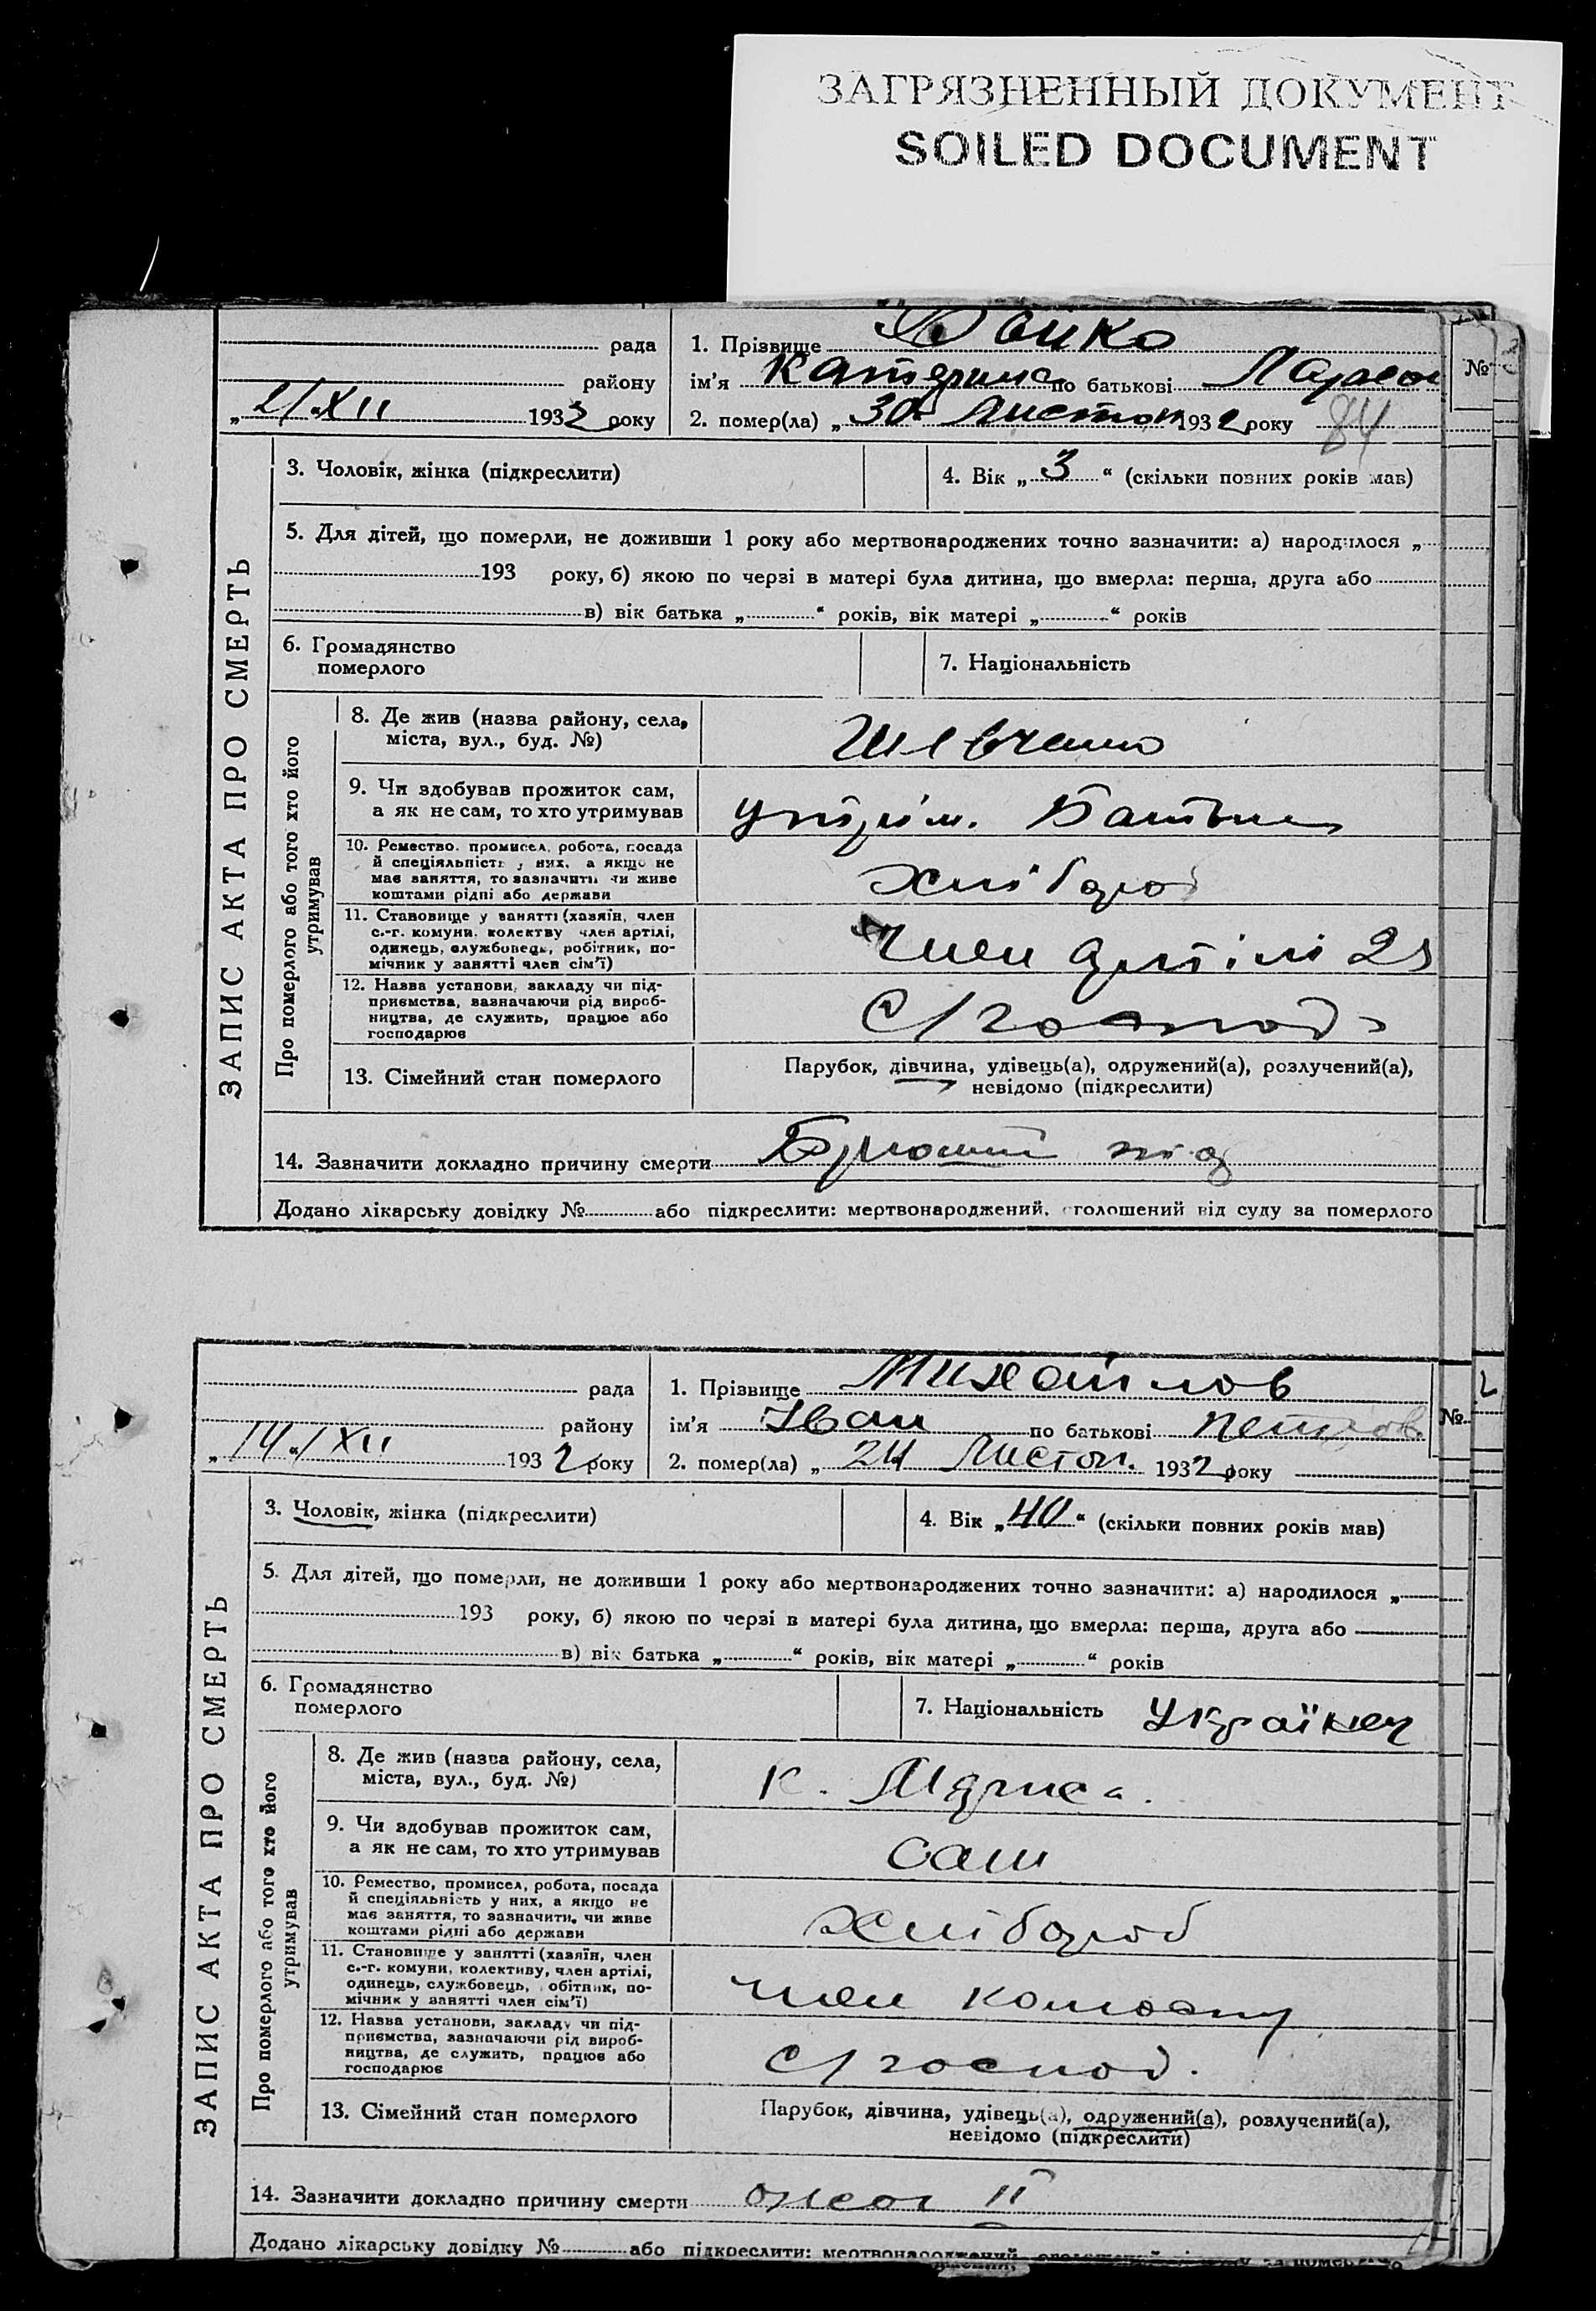 ЗАГРЯЗНЕННЫЙ ДОКУМЕНТ
SOILED DOCUMENT
рада
району
„21/XII 1932 року
1. Прізвище Бойко
ім’я Катерина по батькові
2. помер(ла) „30 Листоп 1932 року
84
№
3. Чоловік, жінка (підкреслити)
4. Вік „3“ (скільки повних років мав)
5. Для дітей, що померли, не доживши 1 року або мертвонароджених точно зазначити: а) народилося „
193 року, б) якою по черзі в матері була дитина, що вмерла: перша, друга або
в) вік батька „ “ років, вік матері „ “ років
6. Громадянство
померлого
7. Національність
ЗАПИС АКТА ПРО СМЕРТЬ
Про померлого або того хто його
утримував
8. Де жив (назва району, села,
міста, вул., буд. №)
Шевченко
9. Чи здобував прожиток сам,
а як не сам, то хто утримував
утрим. Батьки
10. Ремество, промисел, робота, посада
й спеціяльність у них, а якщо не
має заняття, то зазначити чи живе
коштами рідні або держави
хлібороб
11. Становище у занятті (хазяїн, член
с.-г. комуни, колективу член артілі,
одинець, службовець, робітник, по-
мічник у занятті член сім’ї)
член артілі
12. Назва установи, закладу чи під-
приємства, зазначаючи рід вироб-
ництва, де служить, працює або
господарює
с/господ
13. Сімейний стан померлого
Парубок, дівчина, удівець(а), одружений(а), розлучений(а),
невідомо (підкреслити)
14. Зазначити докладно причину смерти Брюшний
Додано лікарську довідку № або підкреслити: мертвонароджений, оголошений від суду за померлого
рада
району
„14/XII 1932 року
1. Прізвище Михайлов
ім’я Іван по батькові Петров
2. помер(ла) „24 Листоп. 1932 року
№
2
3. Чоловік, жінка (підкреслити)
4. Вік „40“ (скільки повних років мав)
5. Для дітей, що померли, не доживши 1 року або мертвонароджених точно зазначити: а) народилося „
193 року, б) якою по черзі в матері була дитина, що вмерла: перша, друга або
в) вік батька „ “ років, вік матері „ “ років
6. Громадянство
померлого
7. Національність Українец
ЗАПИС АКТА ПРО СМЕРТЬ
Про померлого або того хто його
утримував
8. Де жив (назва району, села,
міста, вул., буд. №)
К. Маркса.
9. Чи здобував прожиток сам,
а як не сам, то хто утримував
сам
10. Ремество, промисел, робота, посада
й спеціяльність у них, а якщо не
має заняття, то зазначити, чи живе
коштами рідні або держави
хлібороб
11. Становище у занятті (хазяїн, член
с.-г. комуни, колективу, член артілі,
одинець, службовець, робітник, по-
мічник у занятті член сім’ї)
член
12. Назва установи, закладу чи під-
приємства, зазначаючи рід вироб-
ництва, де служить, працює або
господарює
с/господ.
13. Сімейний стан померлого
Парубок, дівчина, удівець(а), одружений(а), розлучений(а),
невідомо (підкреслити)
14. Зазначити докладно причину смерти ожог II
Додано лікарську довідку № або підкреслити: мертвонароджений